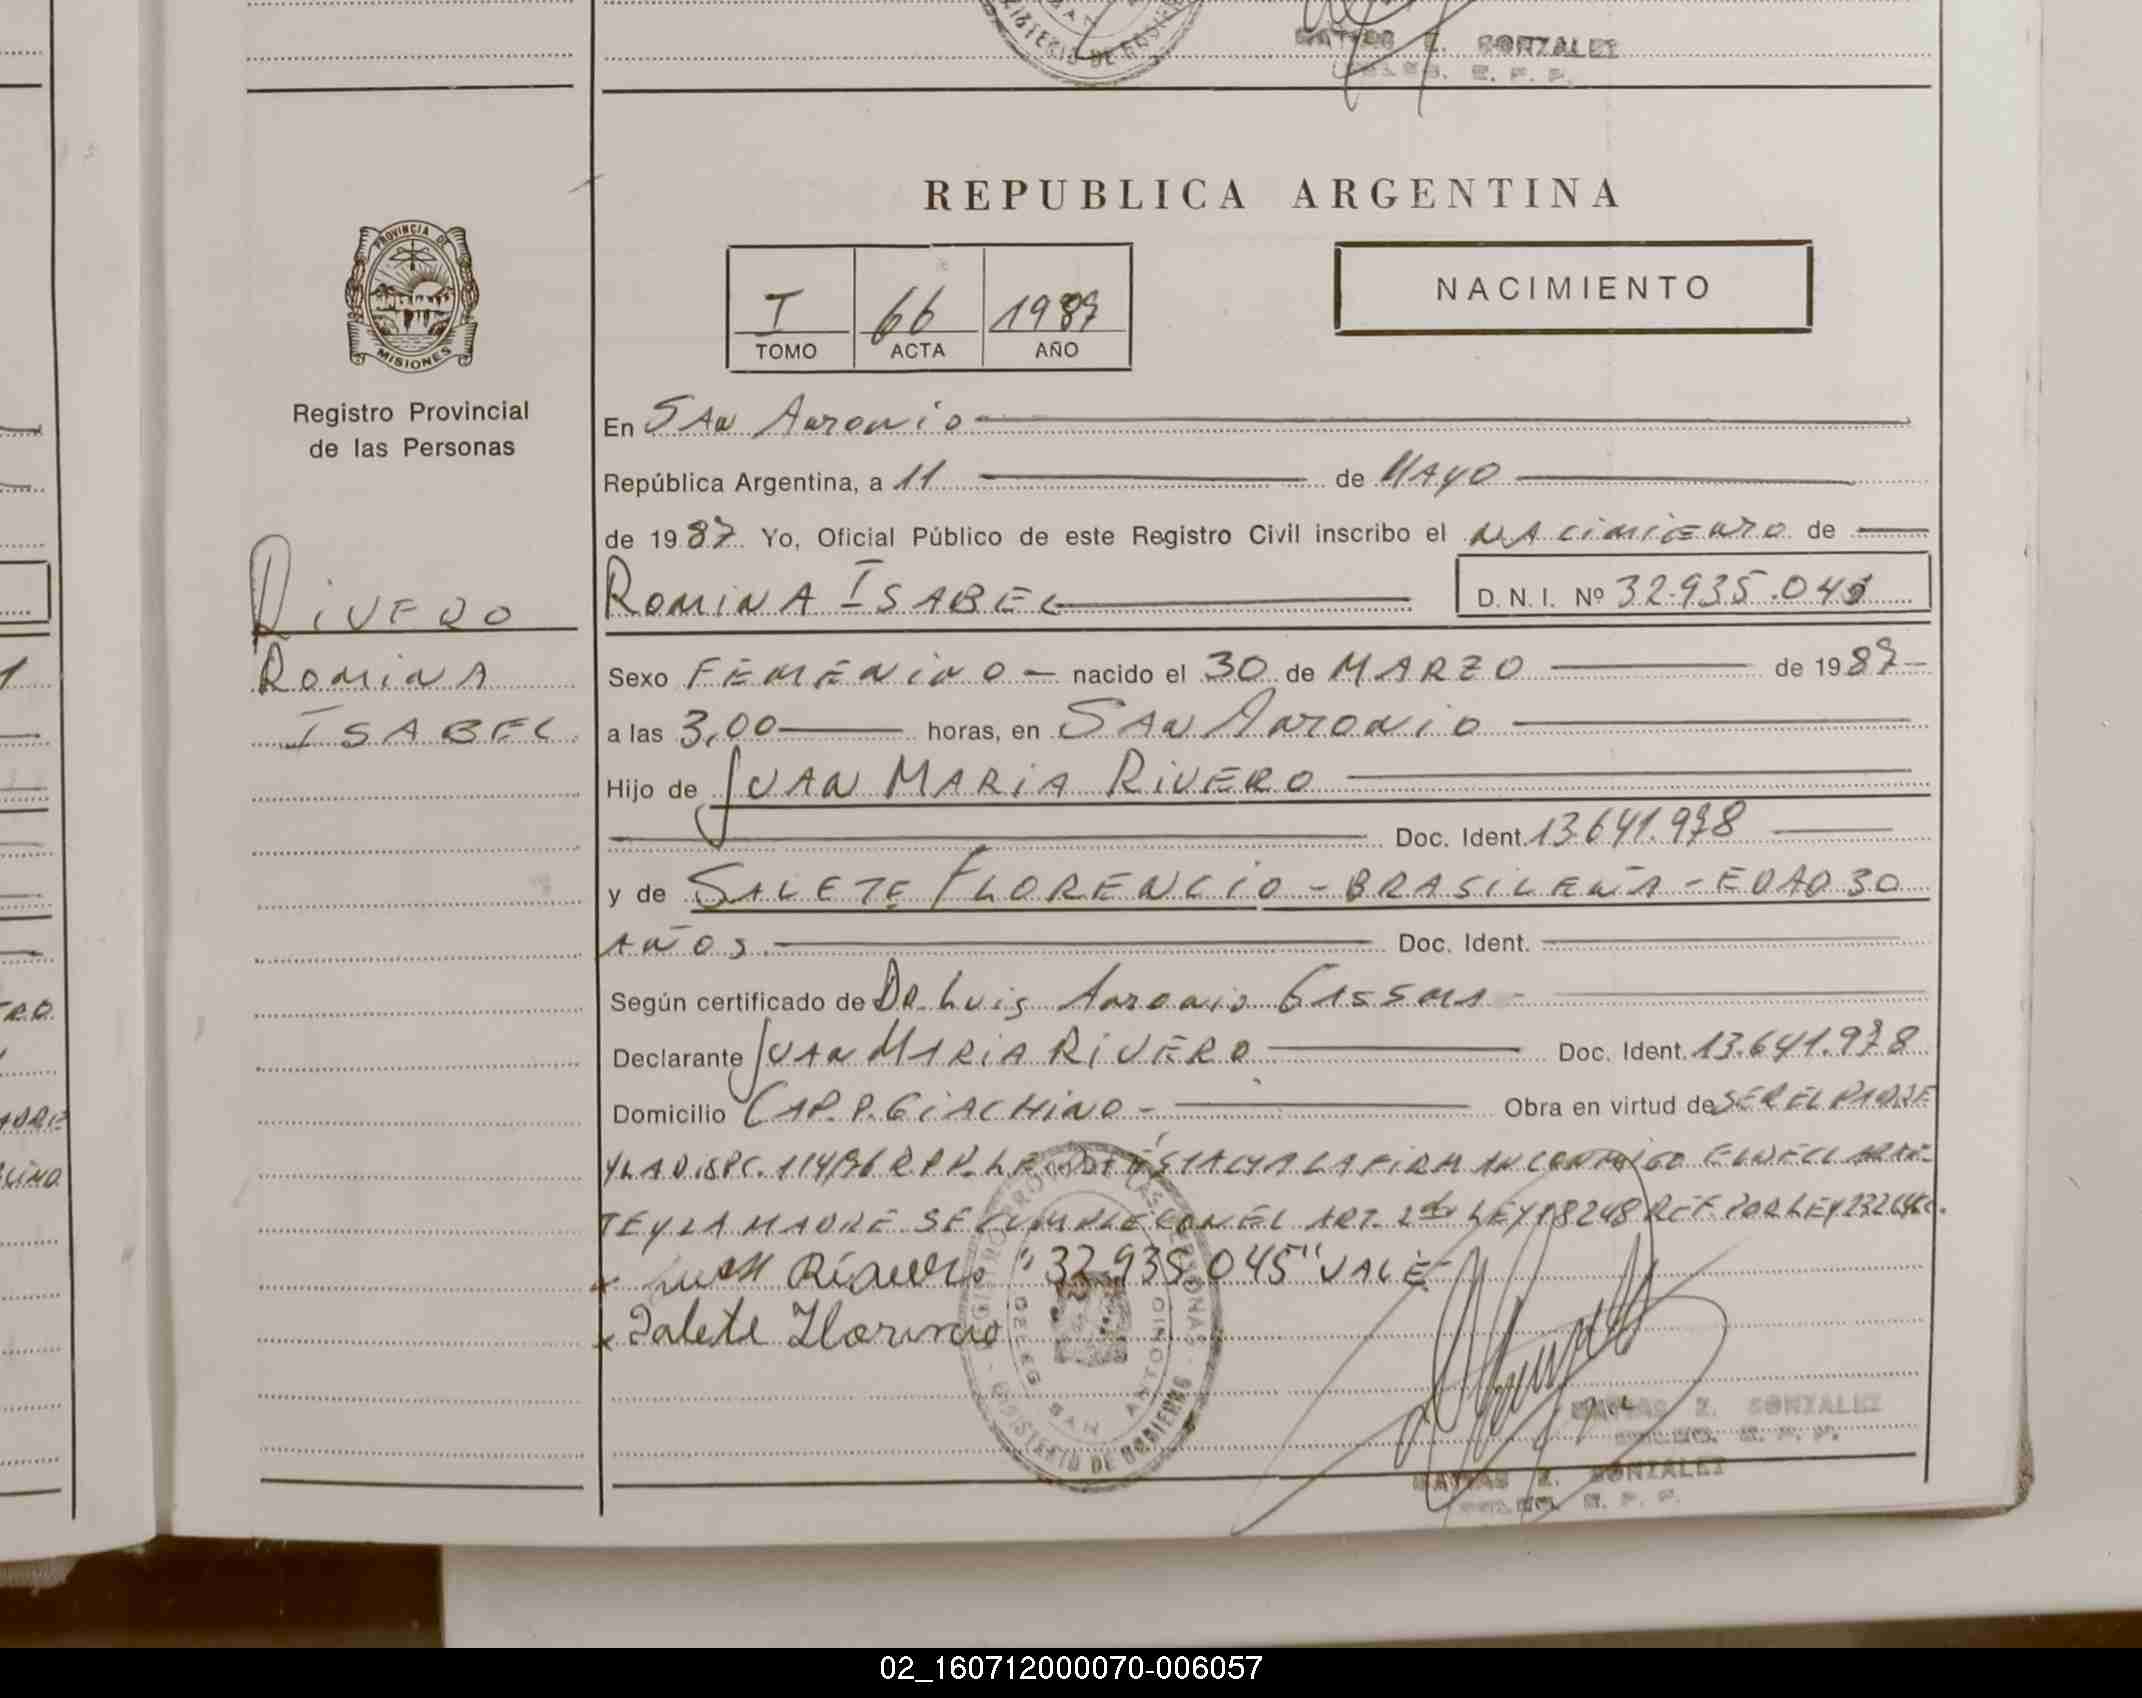 MINISTERIO DE GOBIERNO
MATIAS Z. GONZALEZ
REPUBLICA ARGENTINA
PROVINCIA DE
MISIONES
I 66 1987
TOMO ACTA AÑO
NACIMIENTO
Registro Provincial
de las Personas
RIVERO
ROMINA
ISABEL
En SAN ANTONIO
República Argentina, a 11 de MAYO
de 1987 Yo, Oficial Público de este Registro Civil inscribo el NACIMIENTO de
ROMINA ISABEL D. N. I. Nº 32.935.045
Sexo FEMENINO - nacido el 30 de MARZO de 1987-
a las 3,00 horas, en SAN ANTONIO
Hijo de JUAN MARIA RIVERO
Doc. Ident. 13.641.978
y de SALETE FLORENCIO - BRASILEÑA - EDAD 30
AÑOS. Doc. Ident.
Según certificado de DR. Luis Antonio
Declarante JUAN MARIA RIVERO Doc. Ident. 13.641.978
Domicilio CAP. P. GIACHINO - Obra en virtud de SER EL PADRE
Y LA DISPC. 114/86 R.P.P. LEIDA ESTA ACTA LA FIRMAN CONMIGO EL DECLARAN-
TE Y LA MADRE SE CUMPLE CON EL ART. 2do LEY 18248 REF. POR LEY
"32.935.045" VALE
Salete Florencio
REGISTRO PROV. DE LAS PERSONAS
DELEG. SAN ANTONIO
MINISTERIO DE GOBIERNO
MATIAS Z. GONZALEZ
MATIAS Z. GONZALEZ
02_160712000070-006057